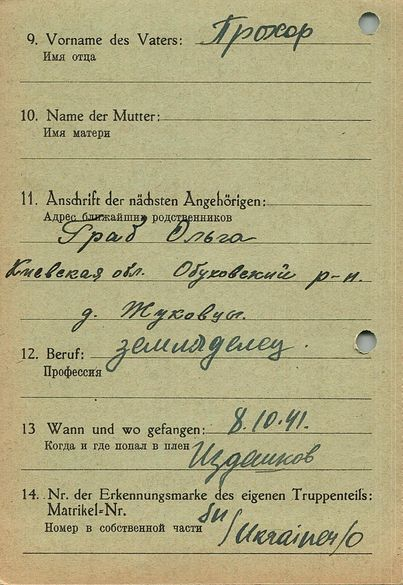 9. Vorname des Vaters: Прохор
Имя отца
10. Name der Mutter:
Имя матери
11. Anschrift der nächsten Angehörigen:
Адрес ближайших родственников
Граб Ольга
Киевская обл. Обуховский р-н.
д. Жуковцы.
12. Beruf: земледелец.
Профессия
13 Wann und wo gefangen: 8.10.41.
Когда и где попал в плен
Издешков
14. Nr. der Erkennungsmarke des eigenen Truppenteils:
Matrikel-Nr.
Номер в собственной части
Ukrainer/o